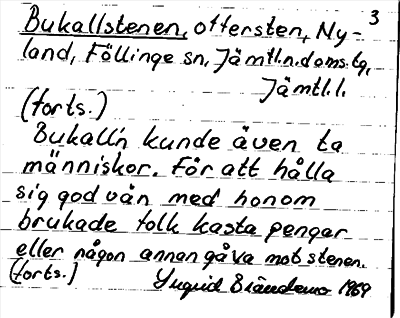 3
Bukallstenen, offersten, Ny-
land, Föllinge sn, Jämtl.n.doms.tg,
Jämtl.l.
(forts.)
Bukall'n kunde även ta
människor. För att hålla
sig god vän med honom
brukade folk kasta pengar
eller någon annan gåva mot stenen.
(forts.) Yngvid 1969